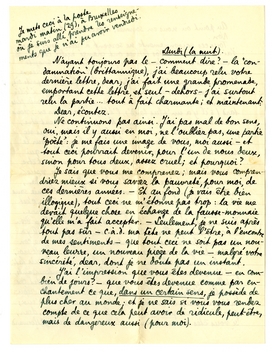 Je mets ceci à la poste
mardi matin (29), à Bruxelles
où je suis allé prendre les renseigne-
ments que je n'ai pu avoir vendredi.
Lundi (la nuit).
N'ayant toujours pas le - comment dire? - la "con-
damnation" (brittannique), j'ai beaucoup relu votre
dernière lettre, Dear, j'ai fait une grande promenade,
emportant cette lettre, et seul - dehors - j'ai surtout
relu la partie - tout à fait charmante; et maintenant
Dear, écoutez.
Ne continuons pas ainsi. J'ai pas mal de bon sens,
oui, mais il y aussi en moi, ne l'oubliez pas, une partie
"poète": je me fais une image de vous, moi aussi - et
tout ceci pourrait devenir, pour l'un de nous deux,
sinon pour tous deux, assez cruel; et pourquoi?
Je sais que vous me comprenez; mais vous compren-
driez mieux si vous saviez la pauvreté, pour moi, de
ces dernières années. - Et au fond (je vais être bien
illogique), tout ceci ne m'étonne pas trop: la vie me
devait quelque chose en échange de la fausse-monnaie
qu'elle m'a fait accepter. - Seulement, je ne suis après
tout pas sûr - c.à.d. ma tête ne peut l'être, à l'encontre
de mes sentiments - que tout ceci ne soit pas un nou-
veau leurre, un nouveau piège de la vie - malgré votre
sincérité, dear, dont je ne doute pas un instant.
J'ai l'impression que vous êtes devenue - en com-
bien de jours? - que vous êtes devenue comme par en-
chantement ce que, dans un certain sens, je possède de
plus cher au monde; et je ne sais si vous vous rendez
compte de ce que cela peut avoir de ridicule, peut-être,
mais de dangereux aussi (pour moi).